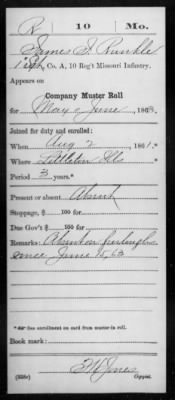 R | 10 | Mo.
James J. Runkle
Co. A, 10 Reg't Missouri Infantry.
Appears on
Company Muster Roll
for May & June, 1863.
Joined for duty and enrolled:
When Aug 2, 1861.*
Where Littleton Ills
Period 3 years.*
Present or absent Absent
Stoppage, $ 100 for
Due Gov't $ 100 for
Remarks: Absent on furlough
since June 15, 63
*See enrollment on card from muster-in roll.
Book mark:
Jones
(358c) Copyist.